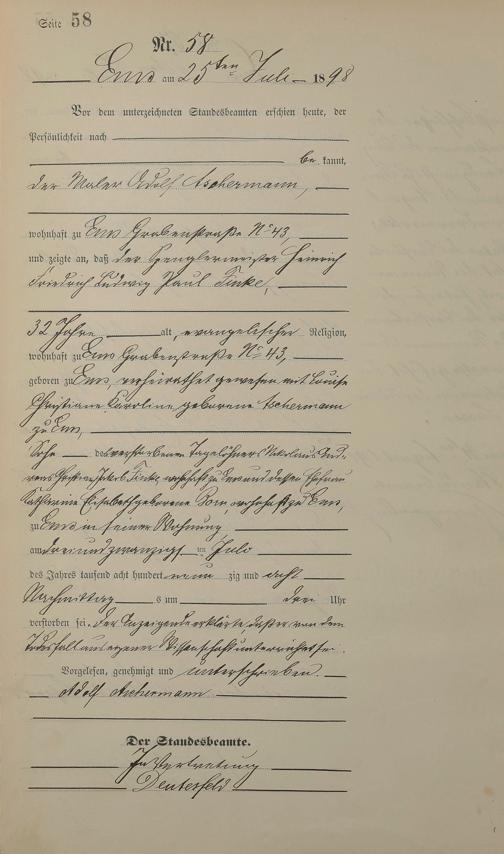 Seite 58
Nr. 58
Ems am 25ten Juli 1898
Vor dem unterzeichneten Standesbeamten erschien heute, der
Persönlichkeit nach
be kannt,
der Maler Adolf Aschermann,
wohnhaft zu Ems Grabenstraße No 43,
und zeigte an, daß der Spenglermeister Heinrich
Friedrich Ludwig Paul Finke,
32 Jahre alt, evangelischer Religion,
wohnhaft zu Ems Grabenstraße No 43,
geboren zu Ems, verheirathet gewesen mit Louise
Christiane Caroline geborene Aschermann
zu Ems,
Sohn des verstorbenen Tagelöhners Nikolaus And-
reas Jakob Finke, wohnhaft zu Ems und dessen Ehefrau
Katharine Elisabeth geborene wohnhaft zu Ems,
zu Ems in seiner Wohnung
am dreiundzwanzigsten Juli
des Jahres tausend acht hundert neun zig und acht
Nachmittags um drei Uhr
verstorben sei. Der Anzeigende erklärte, daß er von dem
Todesfall aus eigener Wissenschaft unterrichtet sei.
Vorgelesen, genehmigt und unterschrieben.
Adolf Aschermann
Der Standesbeamte.
In Vertretung
Deutesfeld